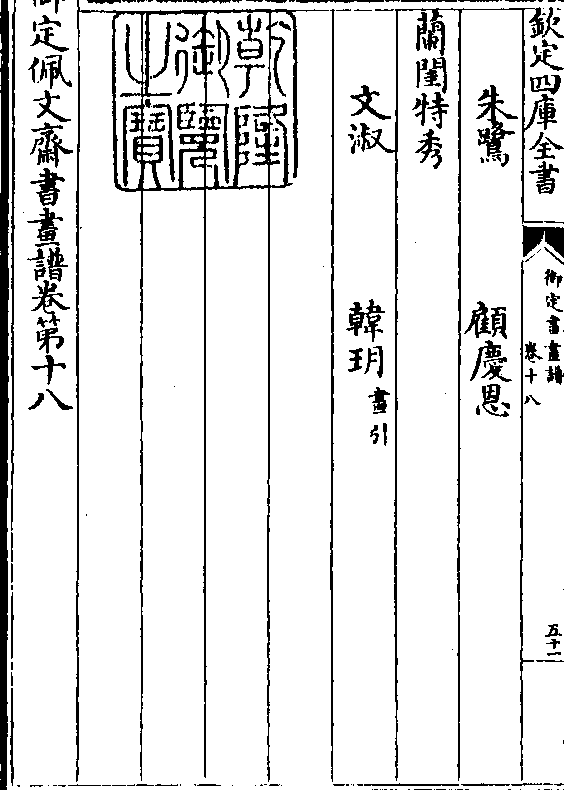 欽定四庫全書
御定書畫譜
卷十八
五十一
朱鷺 顧慶恩
蘭閨特秀
文淑 韓玥畫引
乾隆御覽之寶
御定佩文齋書畫譜卷第十八